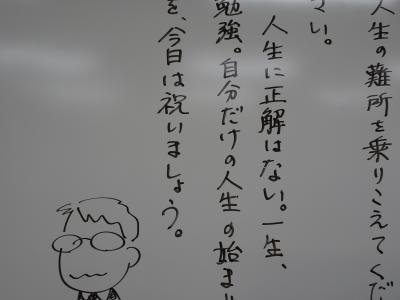 人生の難所を乗りこえてくだ
さい。
人生に正解はない。一生、
勉強。自分だけの人生の始まり
を、今日は祝いましょう。